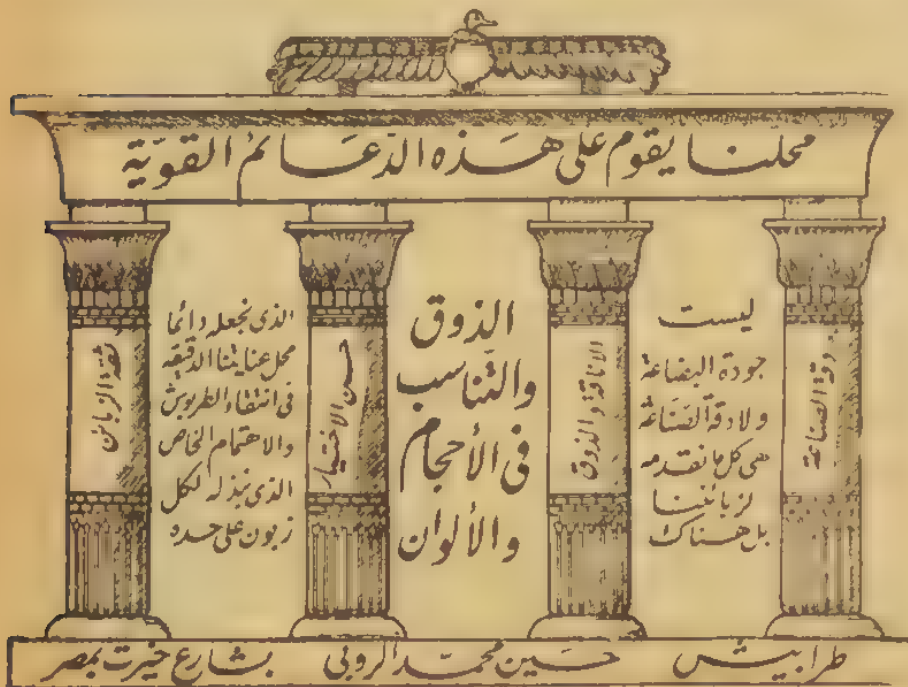 محلنا يقوم على هذه الدّعائم القويّة
دقة الصناعة
ليست
جودة البضاعة
ولا دقة الصّناعة
هى كل ما نقدمه
لزبائننا
بل هناك
الاناقة والذوق
الذوق
والتّناسب
فى الأحجام
والألوان
حسن الاختيار
الذى نجعله دائما
محل عنايتنا الدقيقه
فى انتقاء الطربوش
والاهتمام الخاص
الذى نبذله لكل
زبون على حده
ثقة الزبائن
طرابيش حسين محمّد الروبى بشارع خيرت بمصر